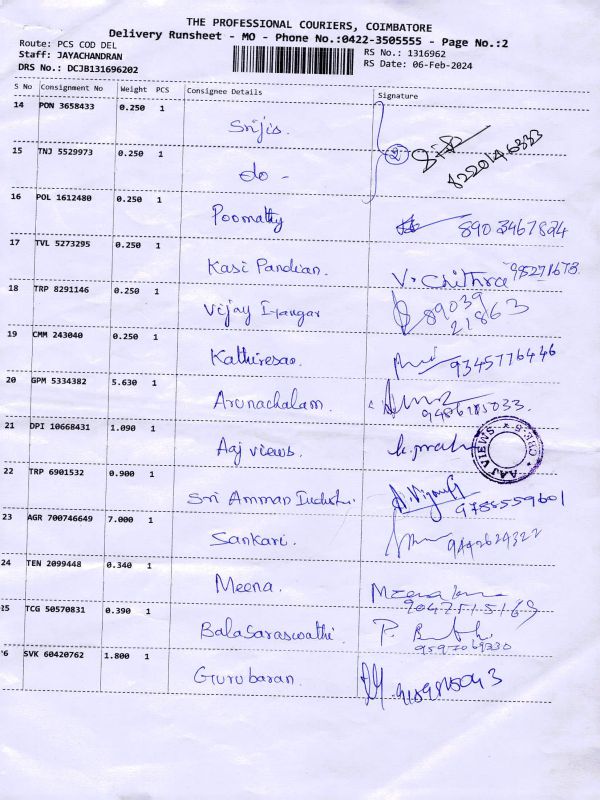 THE PROFESSIONAL COURIERS, COIMBATORE
Delivery Runsheet - MO - Phone No.:0422-3505555 - Page No.:2
Route: PCS COD DEL
Staff: JAYACHANDRAN
DRS No.: DCJB131696202
RS No.: 1316962
RS Date: 06-Feb-2024
S No Consignment No Weight PCS Consignee Details Signature
14 PON 3658433 0.250 1
Srijis.
15 TNJ 5529973 0.250 1
do - 2 8220146333
16 POL 1612480 0.250 1
Poomathy 8903467824
17 TVL 5273295 0.250 1
Kasi Pandian. V. Chithra
18 TRP 8291146 0.250 1
Vijay Iyangar 89039
21863
19 CMM 243040 0.250 1
Kathiresan 9345776446
20 GPM 5334382 5.630 1
Arunachalam.
21 DPI 10668431 1.090 1
Aaj views. AAJ VIEWS * CBE-5 *
22 TRP 6901532 0.900 1
Sri Amman 9788559601
23 AGR 700746649 7.000 1
Sankari. 9442624322
24 TEN 2099448 0.340 1
Meena. Meena
9047515163
25 TCG 50570831 0.390 1
BalaSaraswathi
26 SVK 60420762 1.800 1
Gurubaran.